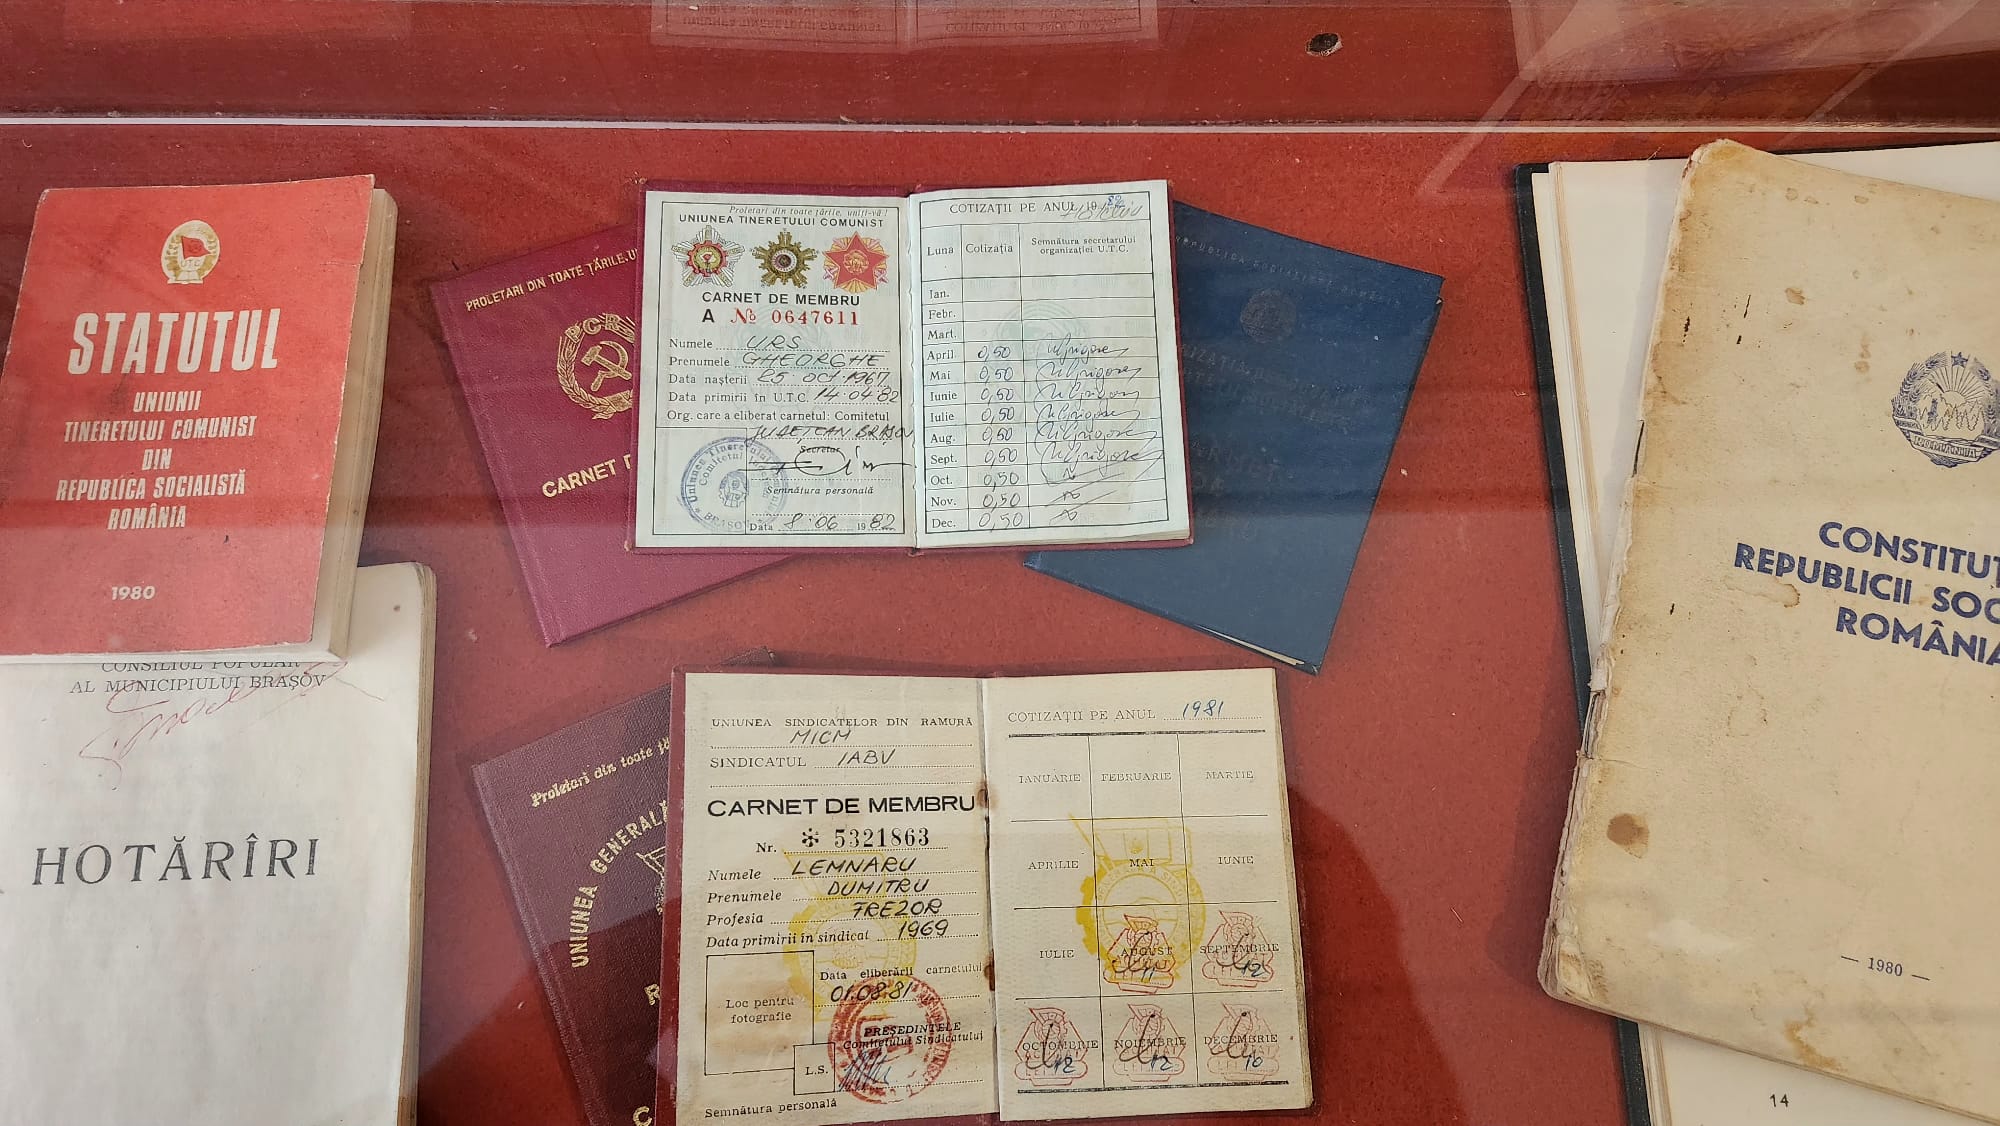 STATUTUL
UNIUNII
TINERETULUI COMUNIST
DIN
REPUBLICA SOCIALISTĂ
ROMÂNIA
1980
CONSILIUL POPULAR
AL MUNICIPIULUI BRAȘOV
HOTĂRÎRI
PROLETARI DIN TOATE ȚĂRILE, U
PCR
CARNET D
Proletari din toate țările, uniți-vă!
UNIUNEA TINERETULUI COMUNIST
CARNET DE MEMBRU
A № 0647611
Numele URS
Prenumele GHEORGHE
Data nașterii 25 OCT 1967
Data primirii în U.T.C. 14.04.82
Org. care a eliberat carnetul: Comitetul
JUDEȚEAN BRAȘOV
Secretar
Semnătura personală
Data 8.06 1982
COTIZAȚII PE ANUL 1982
Luna Cotizația Semnătura secretarului organizației U.T.C.
Ian.
Febr.
Mart.
April 0,50
Mai 0,50
Iunie 0,50
Iulie 0,50
Aug. 0,50
Sept. 0,50
Oct. 0,50
Nov. 0,50
Dec. 0,50
Proletari din toate ță
UNIUNEA GENERALĂ
UNIUNEA SINDICATELOR DIN RAMURA
MICM
SINDICATUL IABV
CARNET DE MEMBRU
Nr. * 5321863
Numele LEMNARU
Prenumele DUMITRU
Profesia FREZOR
Data primirii în sindicat 1969
Loc pentru
fotografie
Data eliberării carnetului
01.08.81
PREȘEDINTELE
Comitetului Sindicatului
L.S.
Semnătura personală
COTIZAȚII PE ANUL 1981
IANUARIE FEBRUARIE MARTIE
APRILIE MAI IUNIE
IULIE AUGUST SEPTEMBRIE
11 12
OCTOMBRIE NOIEMBRIE DECEMBRIE
12 12 10
CONSTITUȚ
REPUBLICII SOC
ROMÂNIA
— 1980 —
14